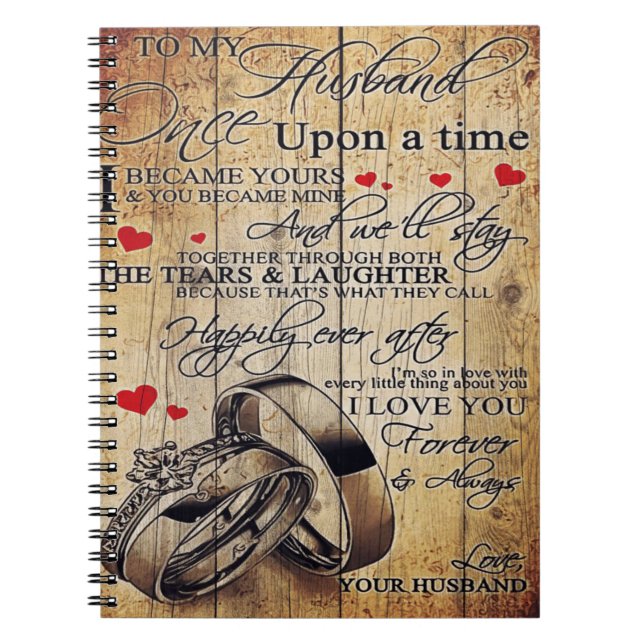 TO MY
Husband
Once Upon a time
I BECAME YOURS
& YOU BECAME MINE
And we'll stay
TOGETHER THROUGH BOTH
THE TEARS & LAUGHTER
BECAUSE THAT'S WHAT THEY CALL
Happily ever after
I'm so in love with
every little thing about you
I LOVE YOU
Forever
& Always
Love,
YOUR HUSBAND